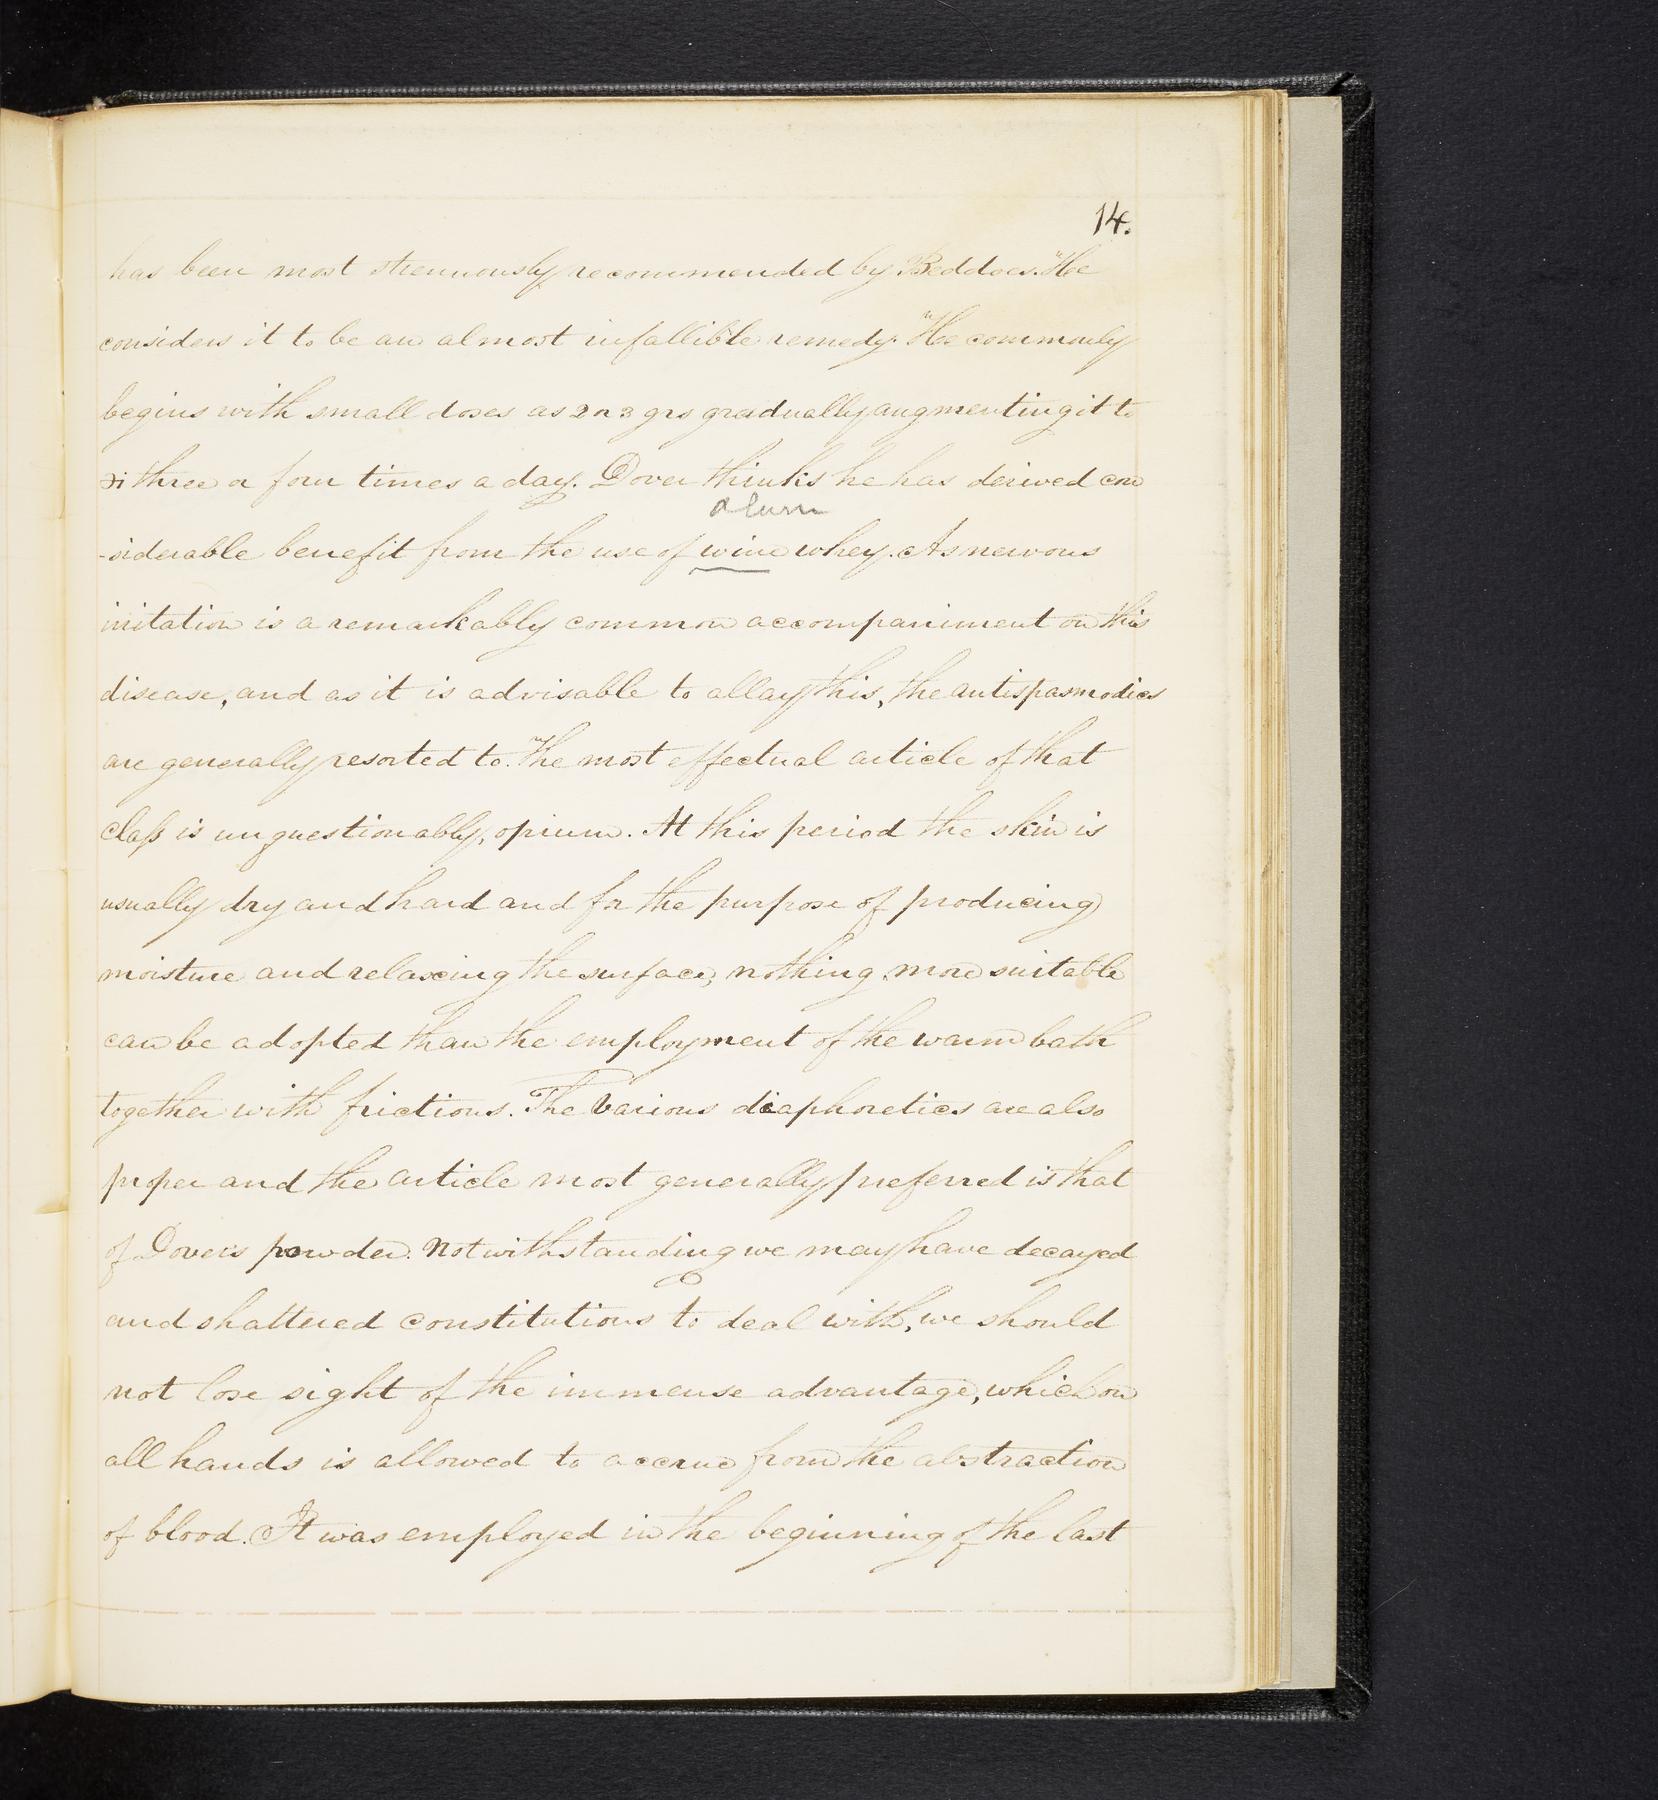 14.
has been most strenuously recommended by Beddoes. He
considers it to be an almost infallible remedy. He commonly
begins with small doses as 2 or 3 grs gradually augmenting it to
℈i three or four times a day. Dover thinks he has derived con
alum
-siderable benefit from the use of wine whey. As nervous
irritation is a remarkably common accompaniment on this
disease, and as it is advisable to allay this, the antispasmodics
are generally resorted to. The most effectual article of that
class is unquestionably, opium. At this period the skin is
usually dry and hard and for the purpose of producing
moisture and relaxing the surface, nothing more suitable
can be adopted than the employment of the warm bath
together with frictions. The various diaphoretics are also
proper and the article most generally preferred is that
of Dover's powder. Notwithstanding we may have decayed
and shattered constitutions to deal with, we should
not lose sight of the immense advantage, which on
all hands is allowed to accrue from the abstraction
of blood. It was employed in the beginning of the last